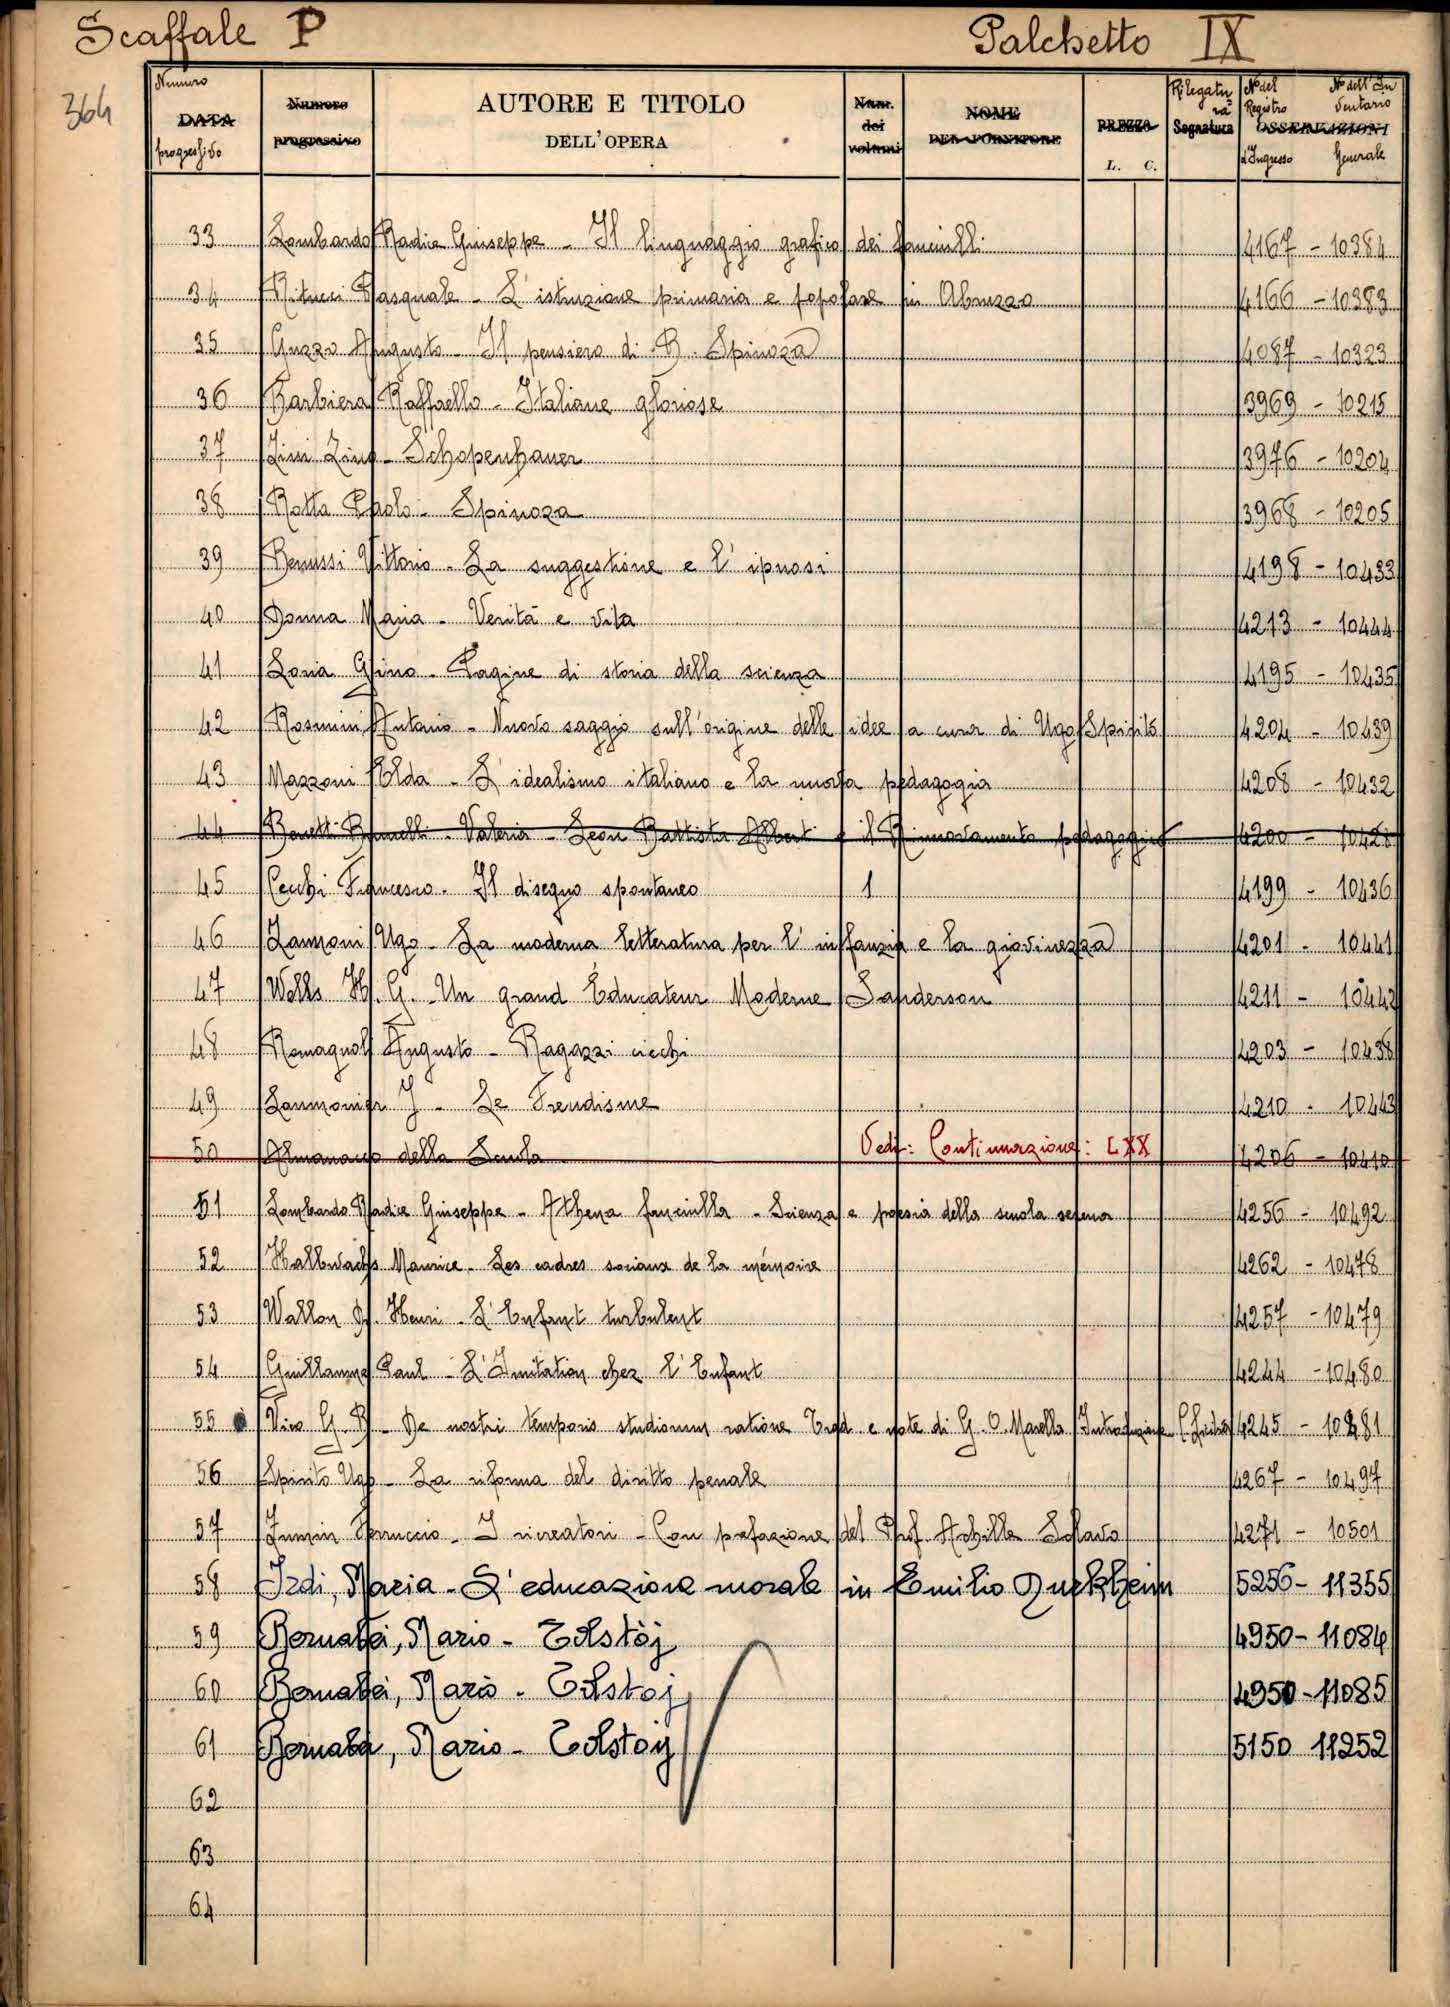 Scaffale P Palchetto IX
364
Numero
DATA
progressivo
Numero
progressivo
AUTORE E TITOLO
DELL'OPERA
Num.
dei
volumi
NOME
DEL FORNITORE
PREZZO
L. C.
Rilegatura
Segnatura
N° del
Registro
d'Ingresso
N° dell'Inventario
OSSERVAZIONI
Generale
33 Lombardo Radice Giuseppe - Il linguaggio grafico dei fanciulli 4167 - 10384
34 Ritucci Pasquale - L'istruzione primaria e popolare in Abruzzo 4166 - 10383
35 Guzzo Augusto - Il pensiero di B. Spinoza 4087 - 10323
36 Barbiera Raffaello - Italiane gloriose 3969 - 10215
37 Zini Zino - Schopenhauer 3976 - 10204
38 Rotta Paolo - Spinoza 3968 - 10205
39 Benussi Vittorio - La suggestione e l'ipnosi 4198 - 10433
40 Donna Maria - Verità e vita 4213 - 10444
41 Loria Gino - Pagine di storia della scienza 4195 - 10435
42 Rosmini Antonio - Nuovo saggio sull'origine delle idee a cura di Ugo Spirito 4204 - 10439
43 Mazzoni Elda - L'idealismo italiano e la nuova pedagogia 4208 - 10432
44 Benetti Brunelli - Valeria - Leon Battista Alberti e il Rinnovamento pedagogico 4200 - 10428
45 Cecchi Francesco - Il disegno spontaneo 1 4199 - 10436
46 Zannoni Ugo - La moderna letteratura per l'infanzia e la giovinezza 4201 - 10441
47 Wells H. G. - Un grand Éducateur Moderne Sanderson 4211 - 10442
48 Romagnoli Augusto - Ragazzi ciechi 4203 - 10438
49 Laumonier J - Le Freudisme 4210 - 10443
50 Almanacco della Scuola Vedi: Continuazione: LXX 4206 - 10410
51 Lombardo Radice Giuseppe - Athena fanciulla - Scienza e poesia della scuola serena 4256 - 10492
52 Halbwachs Maurice - Les cadres sociaux de la mémoire 4262 - 10478
53 Wallon D. Henri - L'Enfant turbulent 4257 - 10479
54 Guillaume Paul - L'Imitation chez l'Enfant 4244 - 10480
55 Vico G. B. - De nostri temporis studiorum ratione Trad. e note di G. O. Marella Introduzione 4245 - 10481
56 Spirito Ugo - La riforma del diritto penale 4267 - 10497
57 Zumin Ferruccio - I ricreatori - Con prefazione del Prof Achille Sclavo 4271 - 10501
58 Izdi, Maria - L'educazione morale in Emilio Durkheim 5256 - 11355
59 Bernabei, Mario - Tolstòj 4950 - 11084
60 Bernabei, Mario - Tolstoj 4950 - 11085
61 Bernabei, Mario - Tolstoy 5150 11252
62
63
64